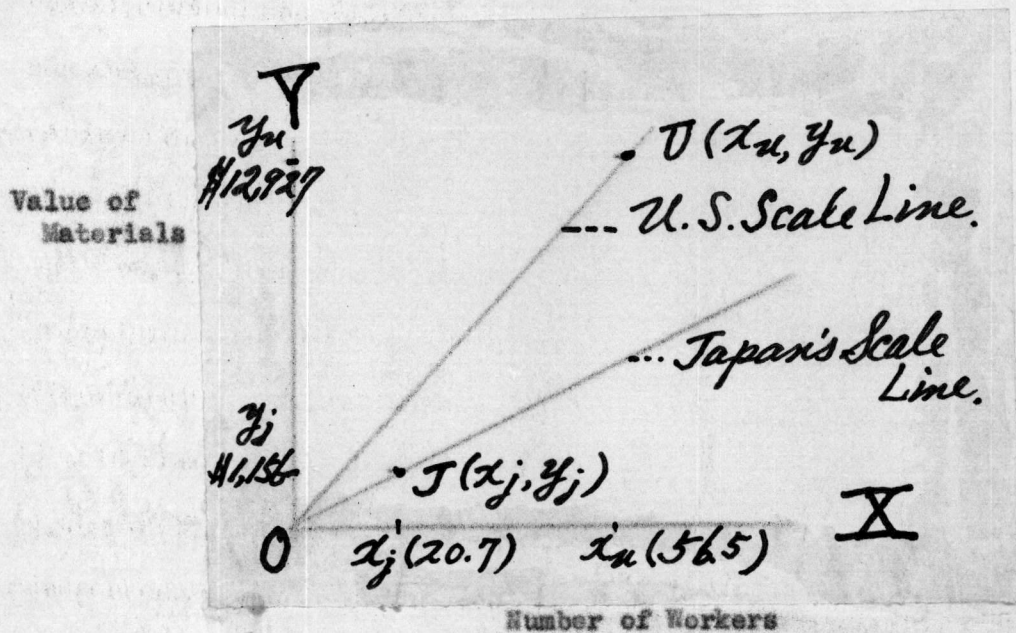 Y
yu
$12,927
Value of
Materials
U (xu, yu)
--- U.S. Scale Line.
--- Japan's Scale
Line.
yj
$1,156
J (xj, yj)
O
xj (20.7)
xu (56.5)
X
Number of Workers